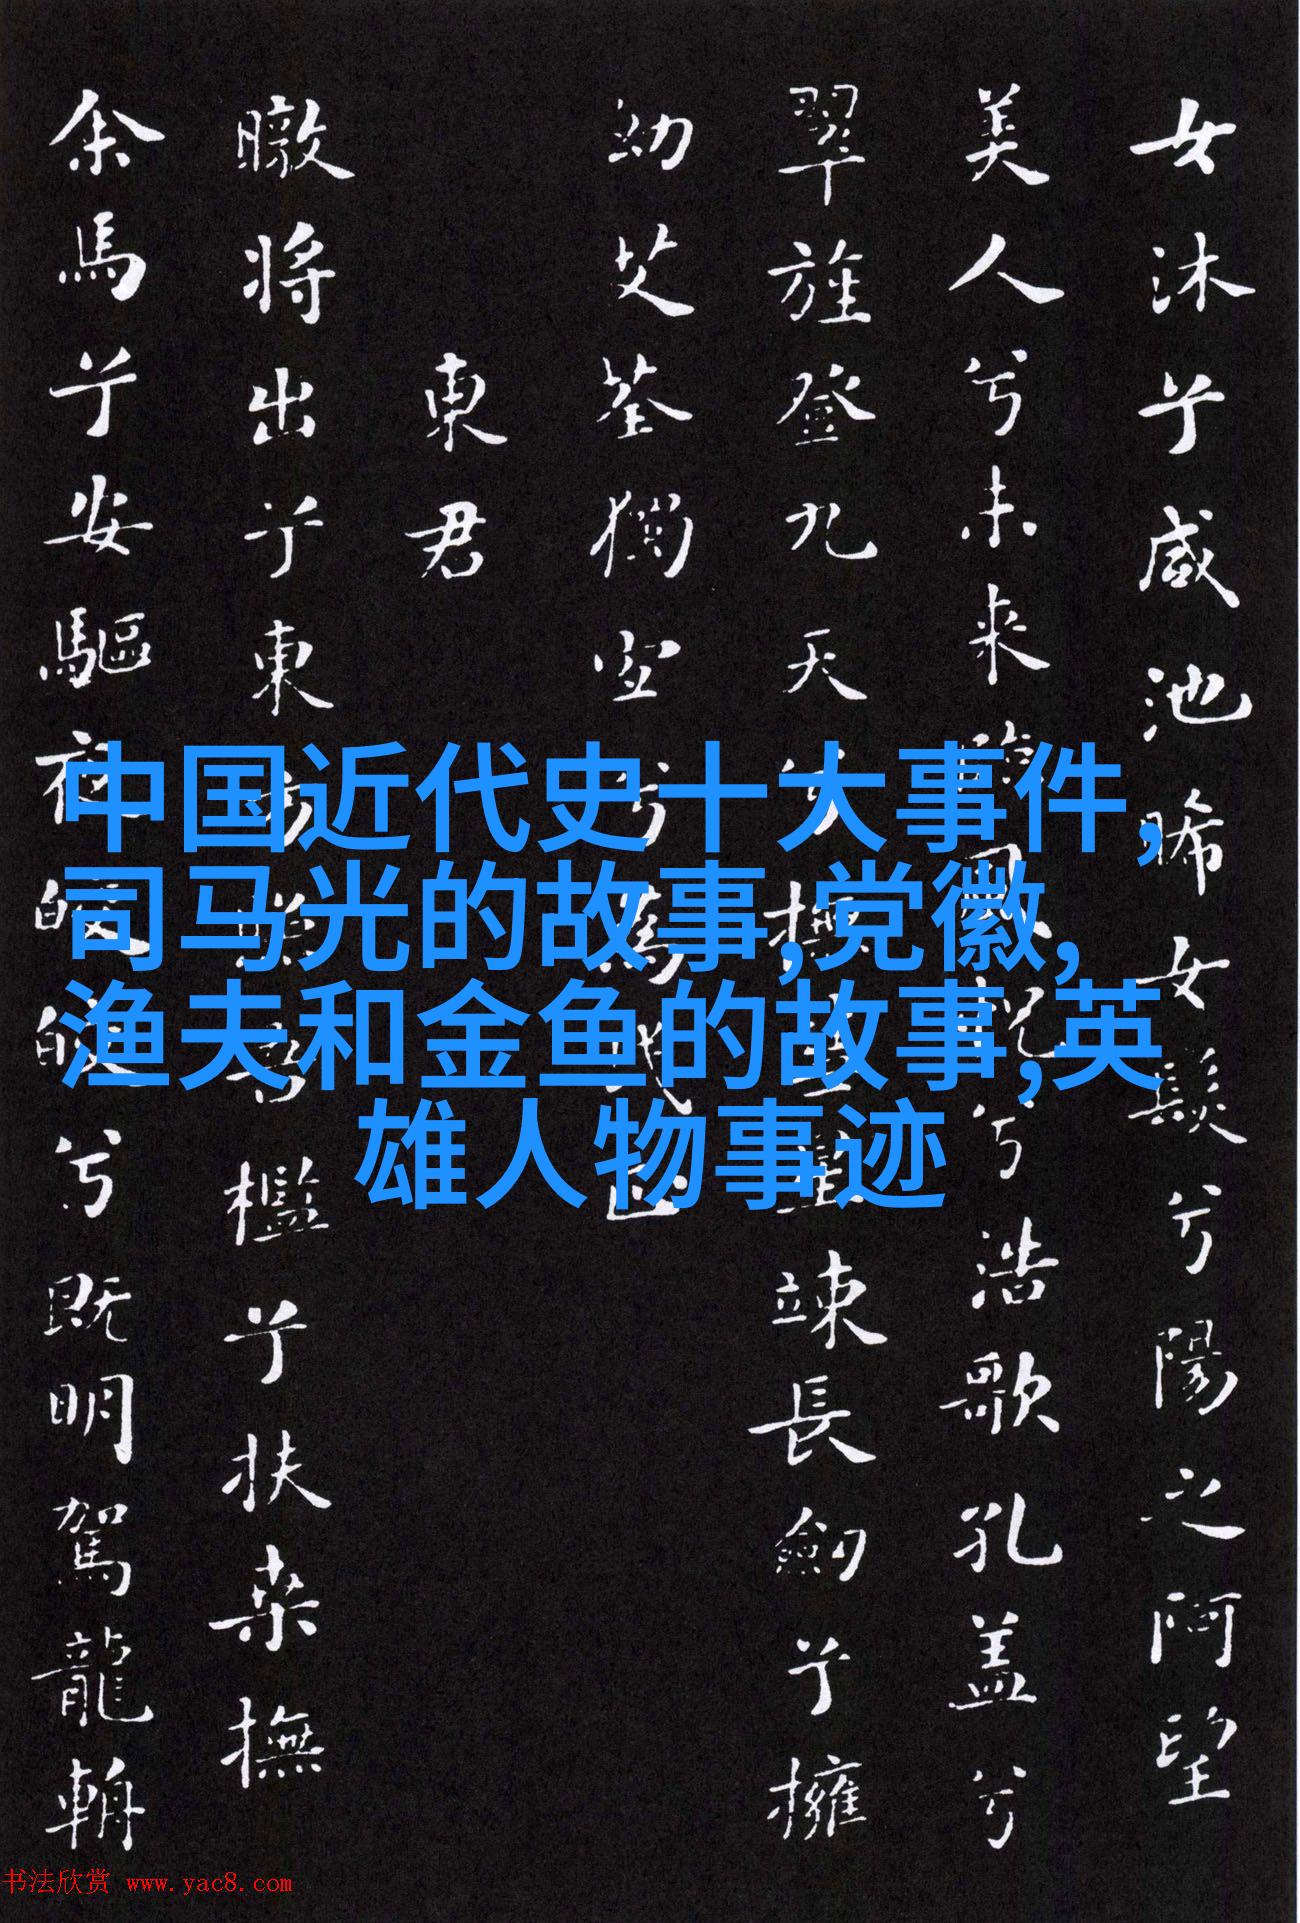 女沐兮咸池晞女髮兮陽之阿望
美人兮未来臨風怳兮浩歌孔盖兮
翠旌登九天兮撫彗星竦長劍兮擁
幼艾荃獨宜兮為民正
東君
暾将出兮東方照吾檻兮扶桑撫
余馬兮安驅夜皎皎兮既明駕龍輈
中国近代史十大事件,
司马光的故事,党徽,
渔夫和金鱼的故事,英
雄人物事迹
书法欣赏 www.yac8.com